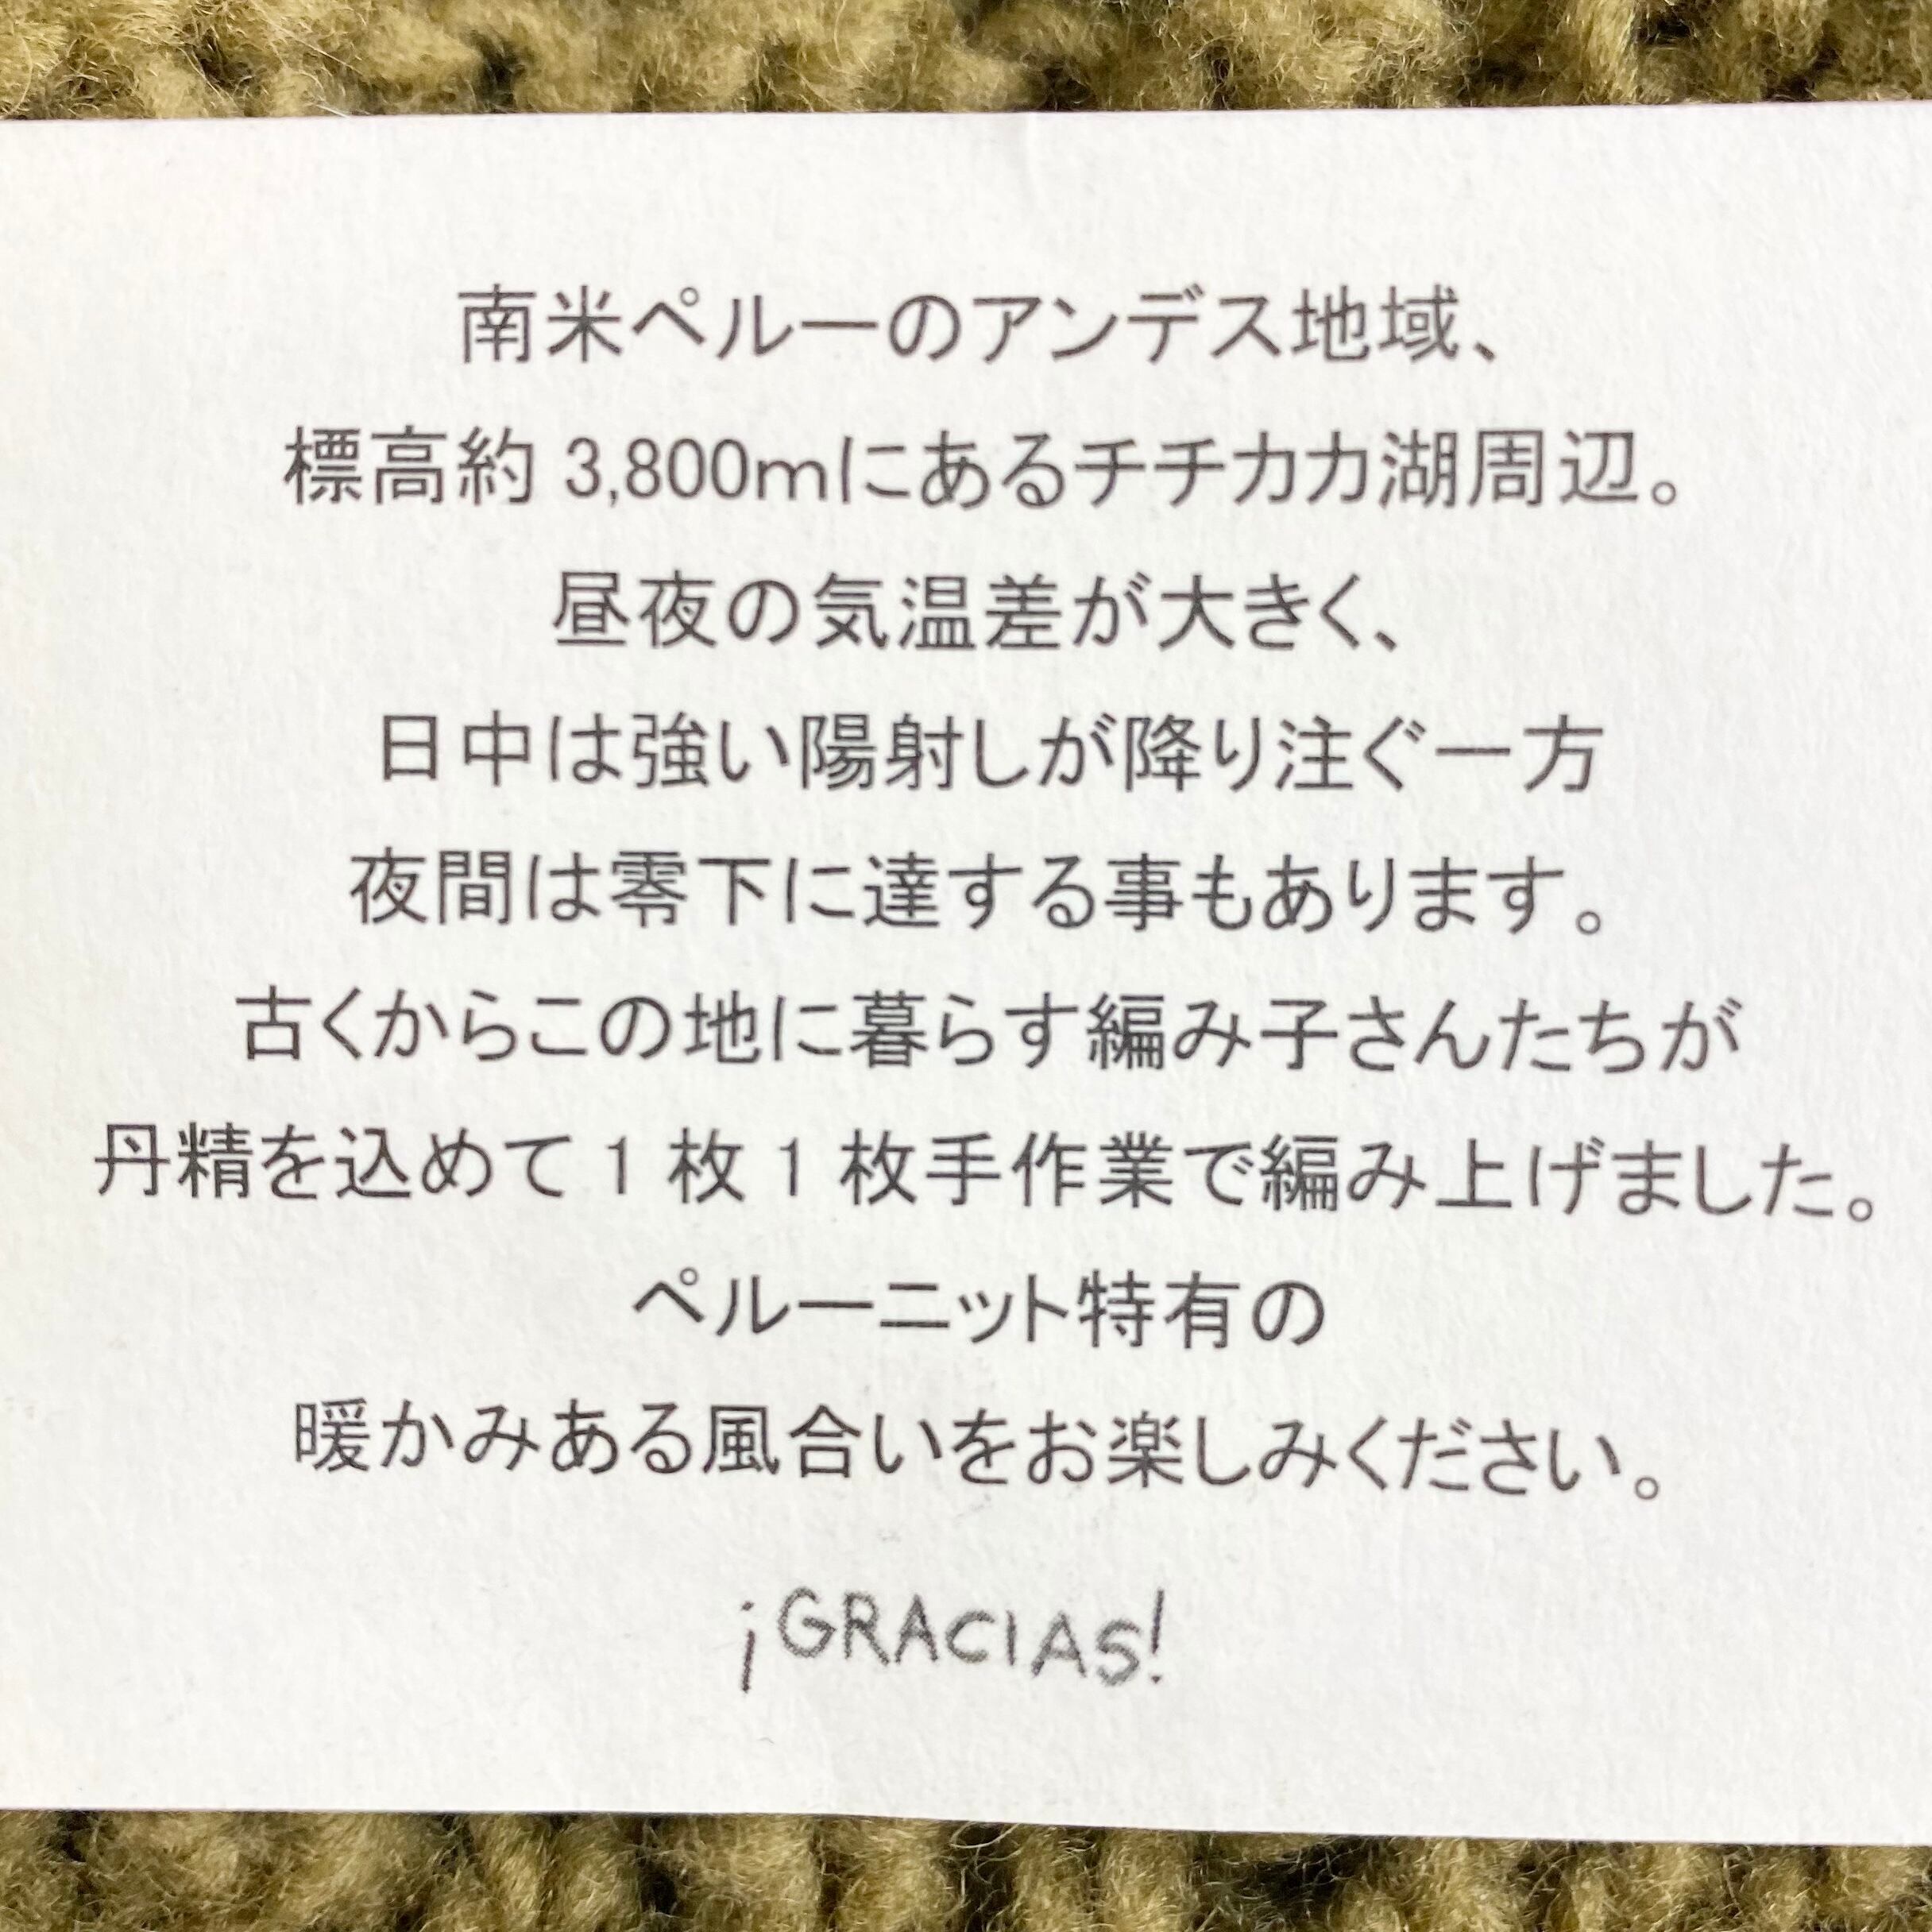 南米ペルーのアンデス地域、
標高約 3,800mにあるチチカカ湖周辺。
昼夜の気温差が大きく、
日中は強い陽射しが降り注ぐ一方
夜間は零下に達する事もあります。
古くからこの地に暮らす編み子さんたちが
丹精を込めて 1 枚 1 枚手作業で編み上げました。
ペルーニット特有の
暖かみある風合いをお楽しみください。
¡GRACIAS!